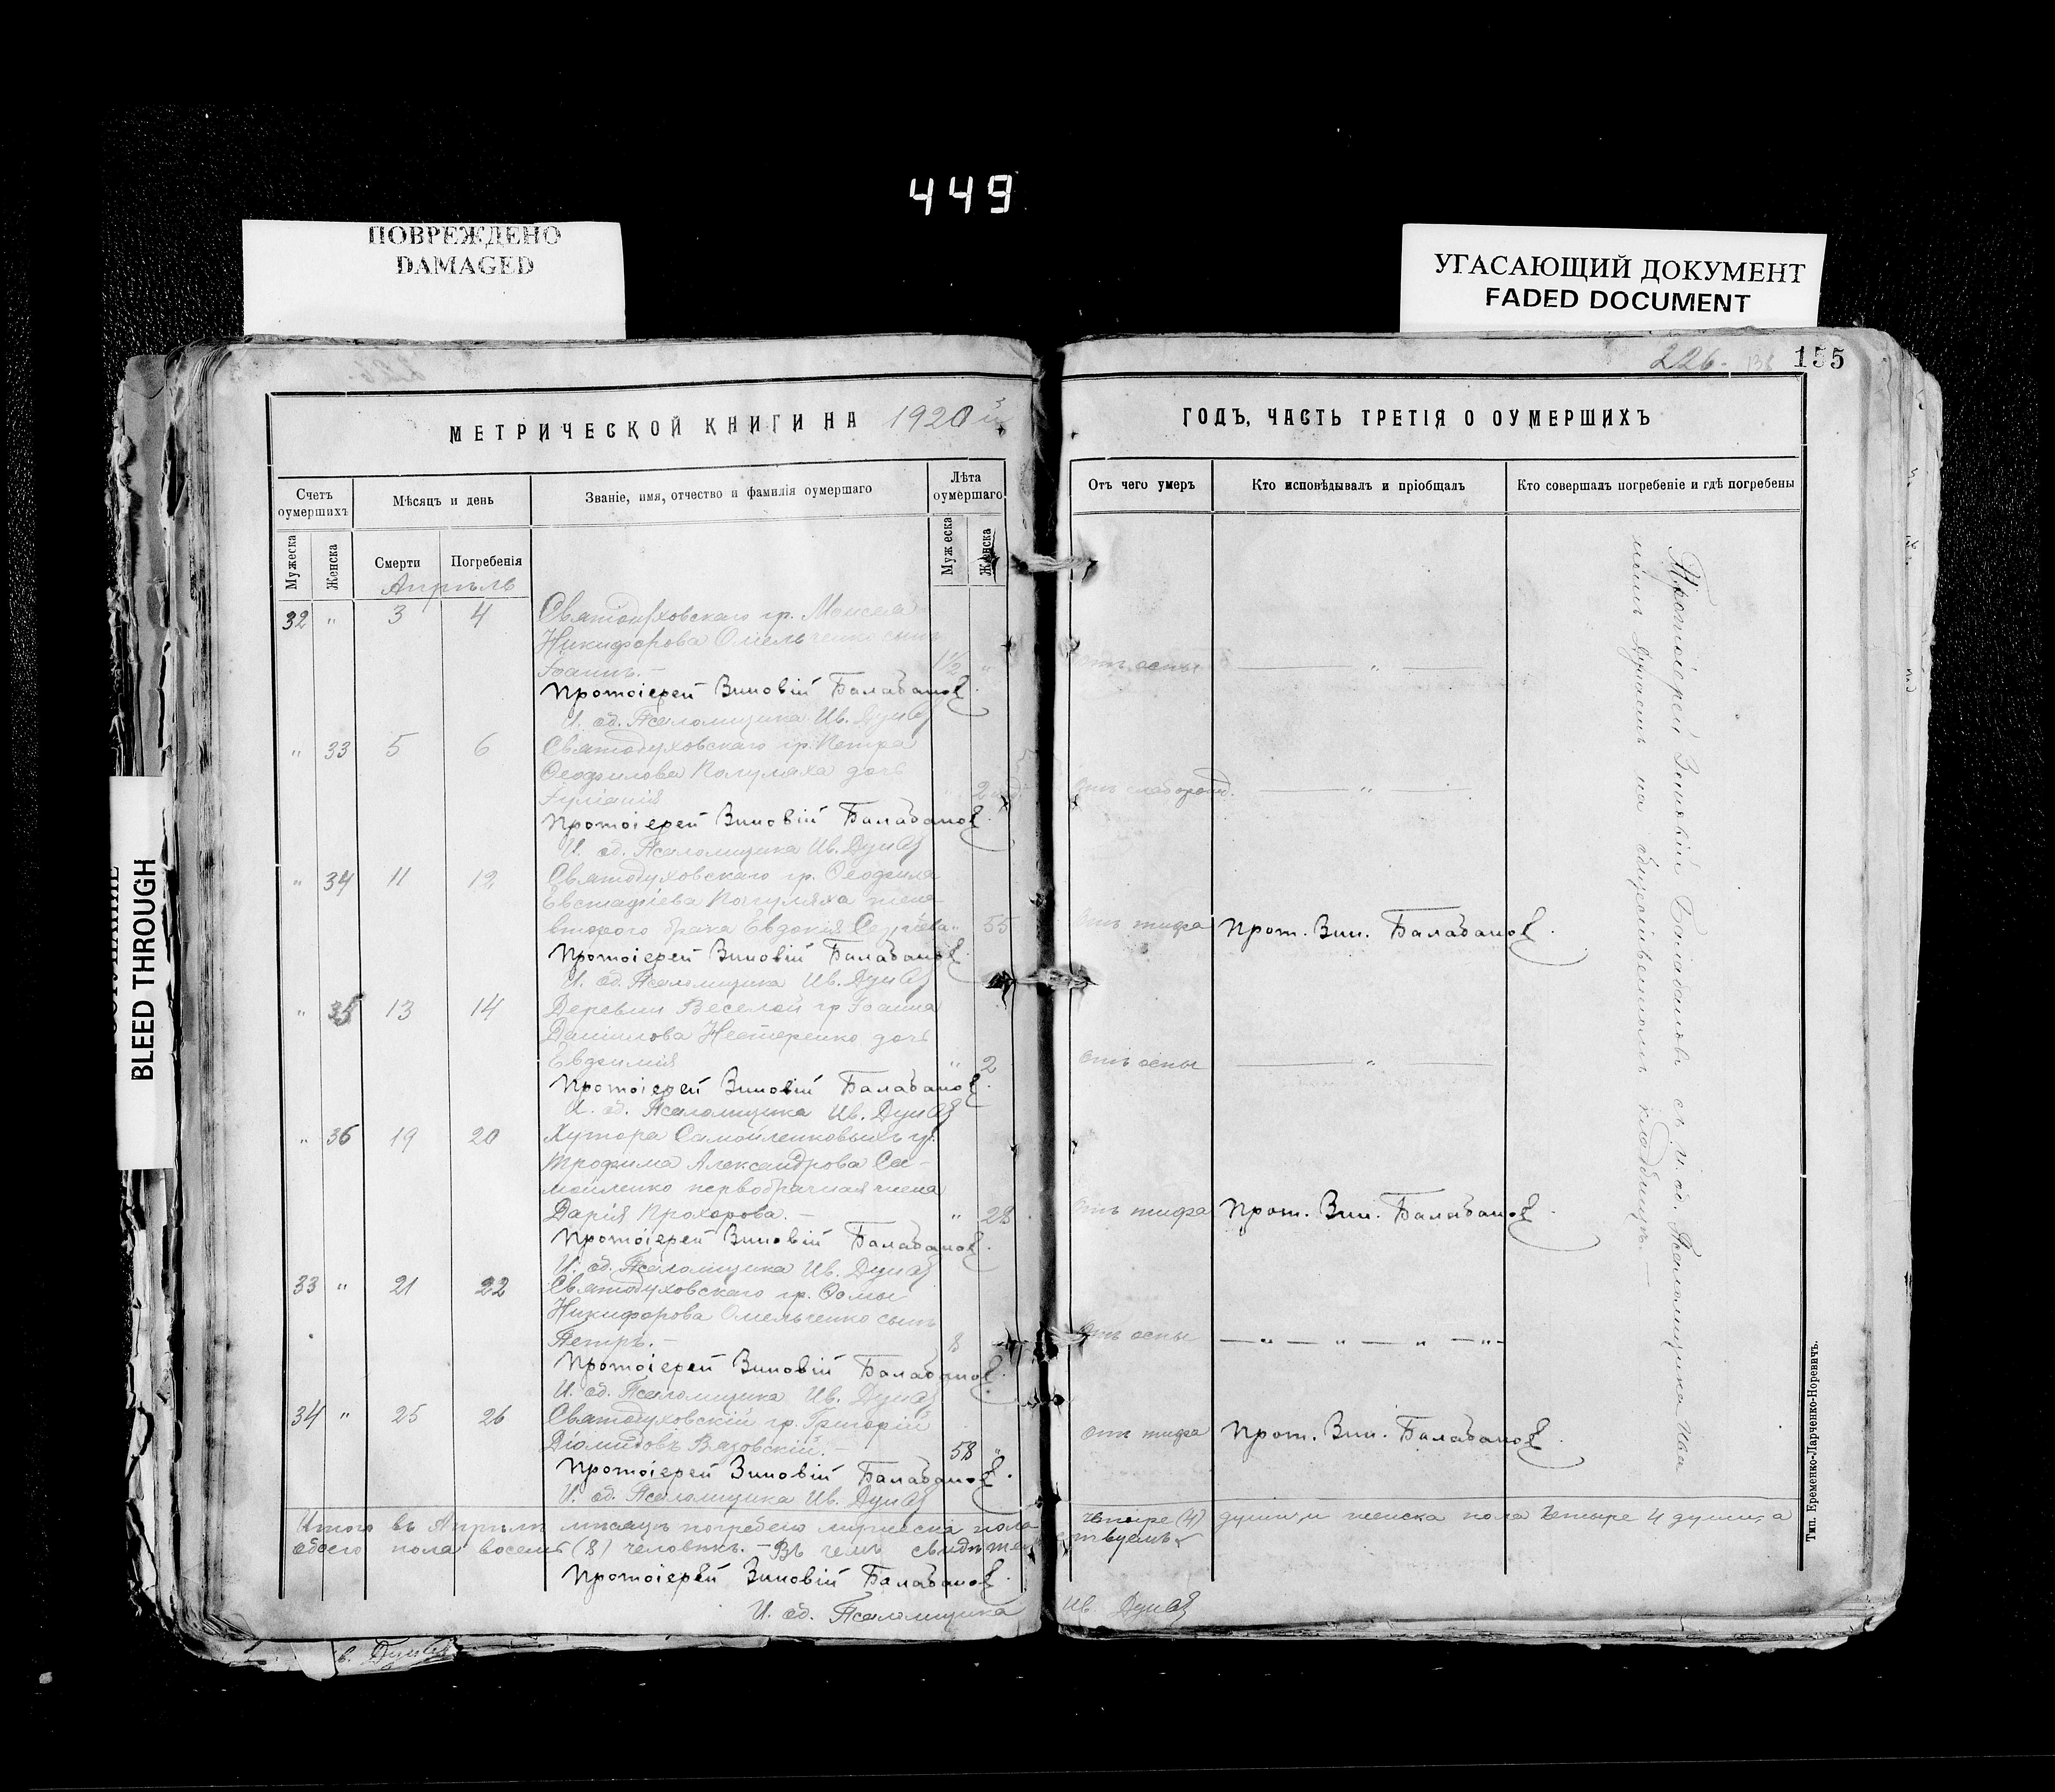 449
ПОВРЕЖДЕНО
DAMAGED
УГАСАЮЩИЙ ДОКУМЕНТ
FADED DOCUMENT
BLEED THROUGH
226.
155
МЕТРИЧЕСКОЙ КНИГИ НА 1920й
ГОДЪ, ЧАСТЬ ТРЕТІЯ О ОУМЕРШИХЪ
Счетъ оумершихъ
Мѣсяцъ и день
Званіе, имя, отчество и фамилія оумершаго
Лѣта оумершаго
Отъ чего умеръ
Кто исповѣдывалъ и пріобщалъ
Кто совершалъ погребеніе и гдѣ погребены
Мужеска
Женска
Смерти
Погребенія
Мужеска
Женска
Апрѣль
32 " 3 4 Святодуховскаго гр. Моисея
Никифорова Омельченко сынъ
Іоаннъ. — 1½ " отъ оспы — " —
Протоіерей Зиновій Балабановъ.
И. об. Псаломщика Ив. Дунай
" 33 5 6 Святодуховскаго гр. Петра
Ѳеофилова Погуляха дочь
Іуліанія отъ слаборожд. — " —
Протоіерей Зиновій Балабановъ.
И. об. Псаломщика Ив. Дунай
" 34 11 12 Святодуховскаго гр. Ѳеофила
Евстафіева Погуляха жена
второго брака Евдокія Сергѣева " 55 отъ тифа Прот. Зин. Балабановъ.
Протоіерей Зиновій Балабановъ.
И. об. Псаломщика Ив. Дунай
" 35 13 14 Деревни Веселой гр. Іоанна
Даніилова Нестеренко дочь
Евфимія " 2 отъ оспы — " —
Протоіерей Зиновій Балабановъ.
И. об. Псаломщика Ив. Дунай
" 36 19 20 Хутора Самойленковыхъ гр.
Трофима Александрова Са-
мойленко первобрачная жена
Дарія Прохорова. — " 28 отъ тифа Прот. Зин. Балабановъ.
Протоіерей Зиновій Балабановъ.
И. об. Псаломщика Ив. Дунай
33 " 21 22 Святодуховскаго гр. Ѳомы
Никифорова Омельченко сынъ
Петръ. — 8 отъ оспы — " — " — " — " —
Протоіерей Зиновій Балабановъ.
И. об. Псаломщика Ив. Дунай
34 " 25 26 Святодуховскій гр. Григорій
Діомидовъ Вязовскій. — 58 " отъ тифа Прот. Зин. Балабановъ.
Протоіерей Зиновій Балабановъ.
И. об. Псаломщика Ив. Дунай
Протоіерей Зиновій Балабановъ съ и. об. Псаломщика Ива
номъ Дунаемъ на общественномъ кладбищѣ. —
Итого въ Апрѣлѣ мѣсяцѣ погребено мужеска пола четыре (4) души и женска пола четыре 4 души, а
обоего пола восемь (8) человѣкъ. — Въ чемъ свидѣтельствуемъ
Протоіерей Зиновій Балабановъ.
И. об. Псаломщика Ив. Дунай
Тип. Еременко-Ларченко-Норевичъ.